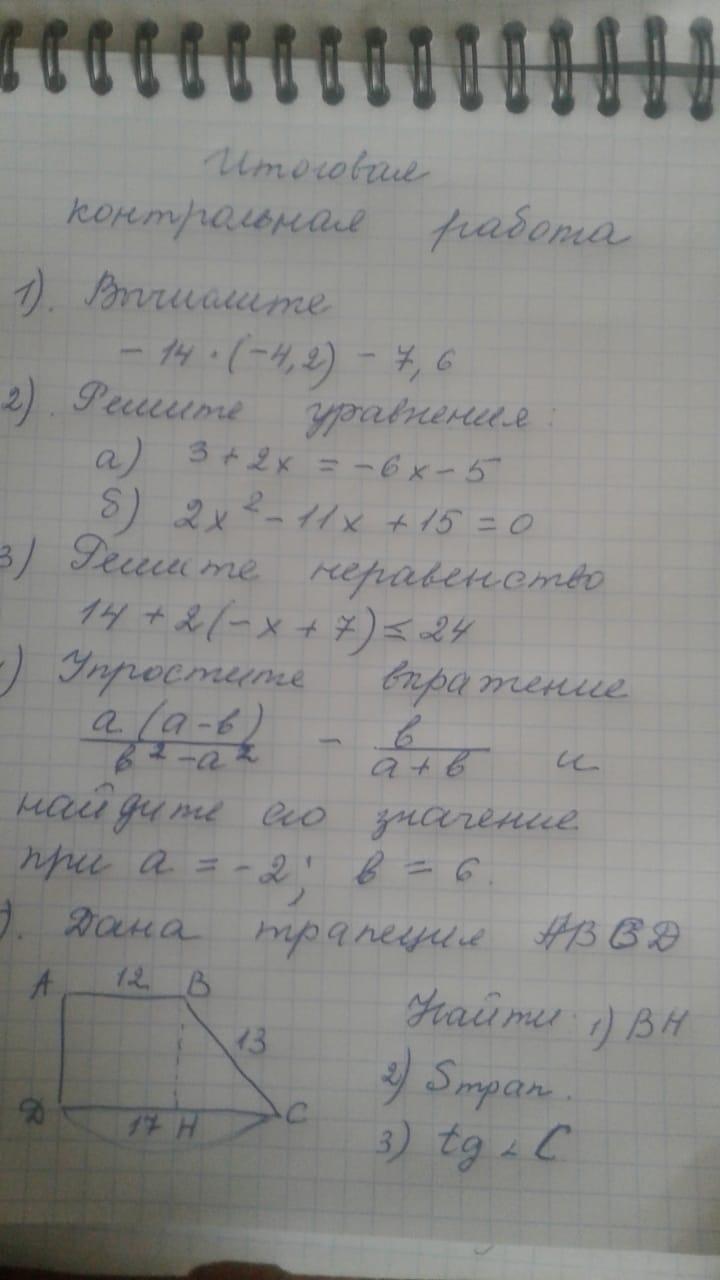 Итоговая
контрольная работа
1). Вычислите
- 14 · (-4,2) - 7,6
2). Решите уравнения:
а) 3 + 2x = -6x - 5
б) 2x² - 11x + 15 = 0
3) Решите неравенство
14 + 2(-x + 7) ≤ 24
) Упростите выражение
a (a-b) / b² - a² - b / a + b и
найдите его значение
при a = -2; b = 6.
). Дана трапеция ABCD
A 12 B
Найти: 1) BH
13
2) Sтрап.
D 17 H C
3) tg ∠ C